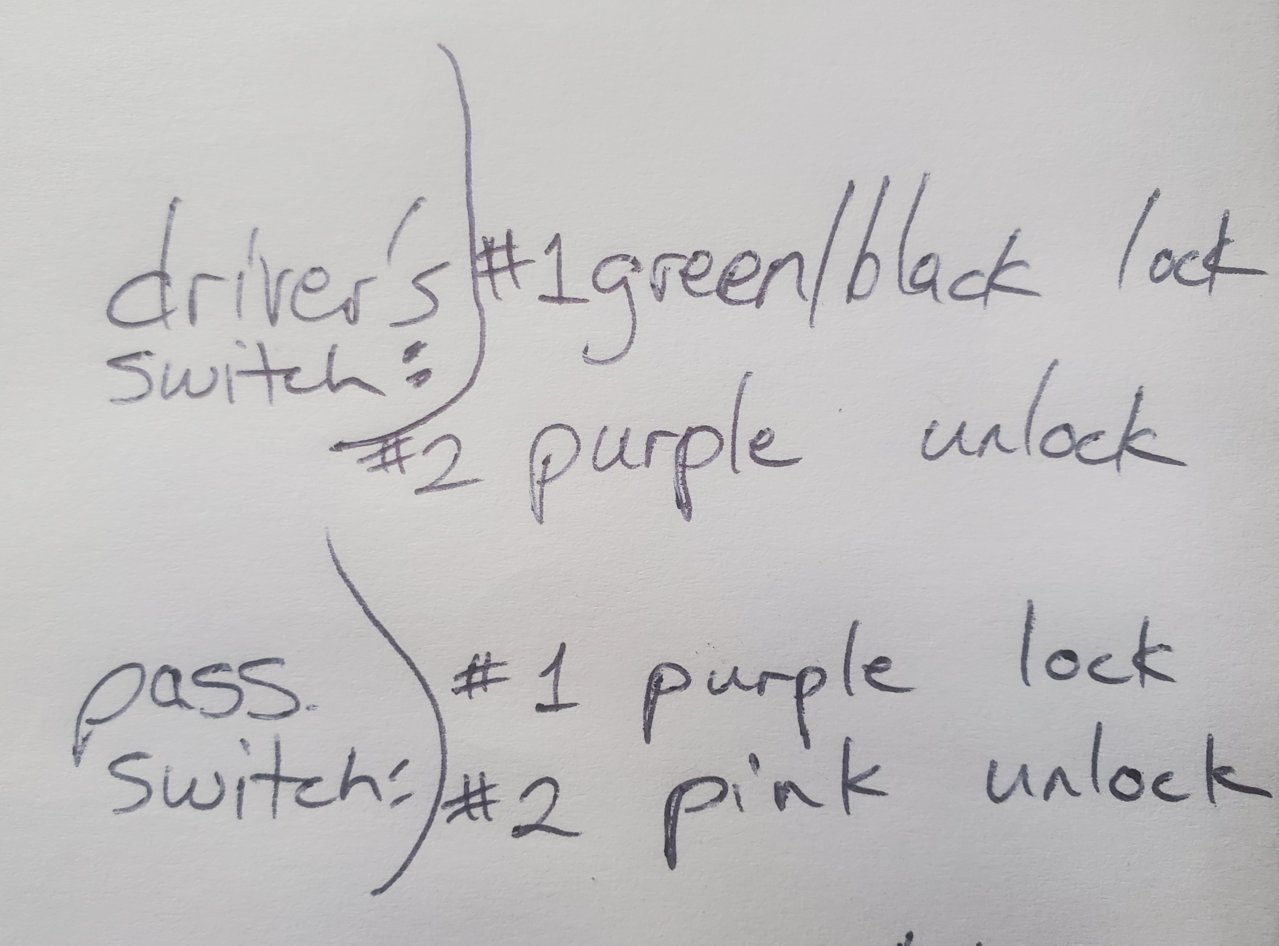 driver's #1 green/black lock
switch:
#2 purple unlock
pass. #1 purple lock
switch: #2 pink unlock